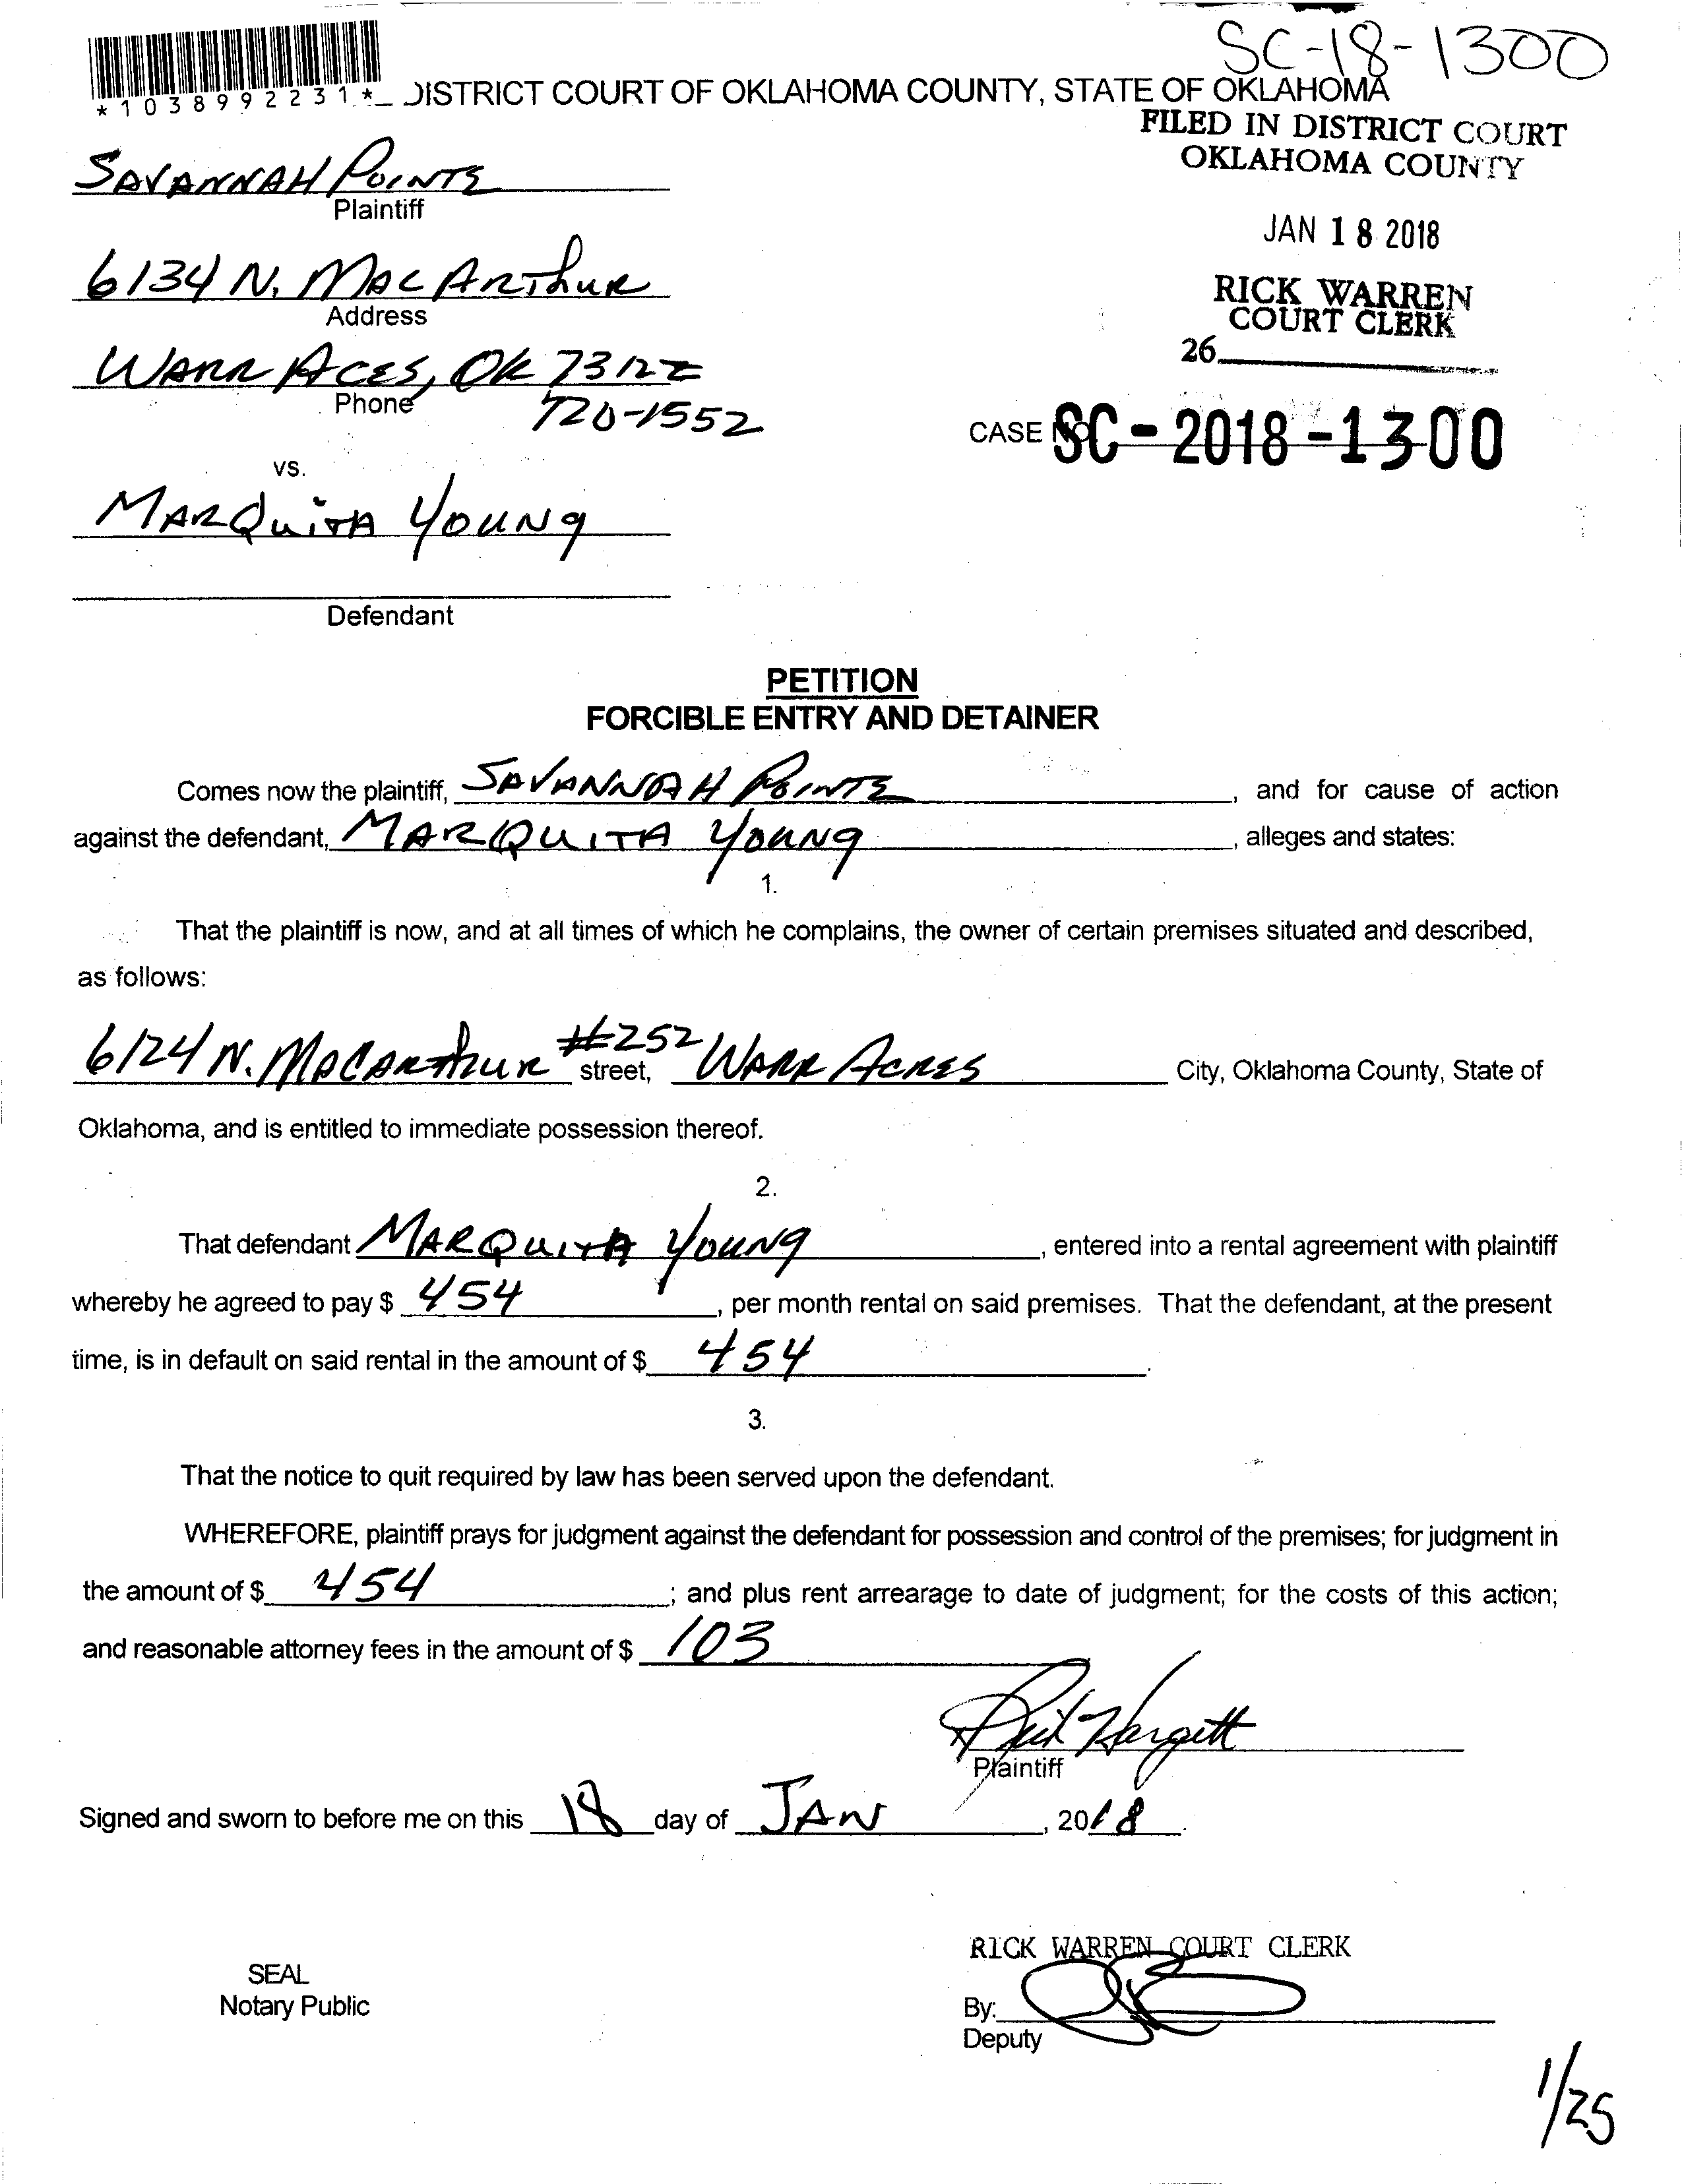 SC-18-1300
*1038992231*
DISTRICT COURT OF OKLAHOMA COUNTY, STATE OF OKLAHOMA
FILED IN DISTRICT COURT
OKLAHOMA COUNTY
SAVANNAH POINTE
Plaintiff
JAN 18 2018
6134 N. MACARTHUR
Address
RICK WARREN
COURT CLERK
26
WARR ACES, OK 73122
Phone
720-1552
CASE NO. SC-2018-1300
vs.
MARQUITA YOUNG
Defendant
PETITION
FORCIBLE ENTRY AND DETAINER
Comes now the plaintiff, SAVANNAH POINTE, and for cause of action
against the defendant, MARQUITA YOUNG, alleges and states:
1.
That the plaintiff is now, and at all times of which he complains, the owner of certain premises situated and described,
as follows:
6124 N. MACARTHUR #252 street, WARR ACRES City, Oklahoma County, State of
Oklahoma, and is entitled to immediate possession thereof.
2.
That defendant MARQUITA YOUNG, entered into a rental agreement with plaintiff
whereby he agreed to pay $ 454, per month rental on said premises. That the defendant, at the present
time, is in default on said rental in the amount of $ 454.
3.
That the notice to quit required by law has been served upon the defendant.
WHEREFORE, plaintiff prays for judgment against the defendant for possession and control of the premises; for judgment in
the amount of $ 454; and plus rent arrearage to date of judgment; for the costs of this action;
and reasonable attorney fees in the amount of $ 103
Hargett
Plaintiff
Signed and sworn to before me on this 18 day of JAN, 2018.
RICK WARREN COURT CLERK
SEAL
Notary Public
By:
Deputy
1/25